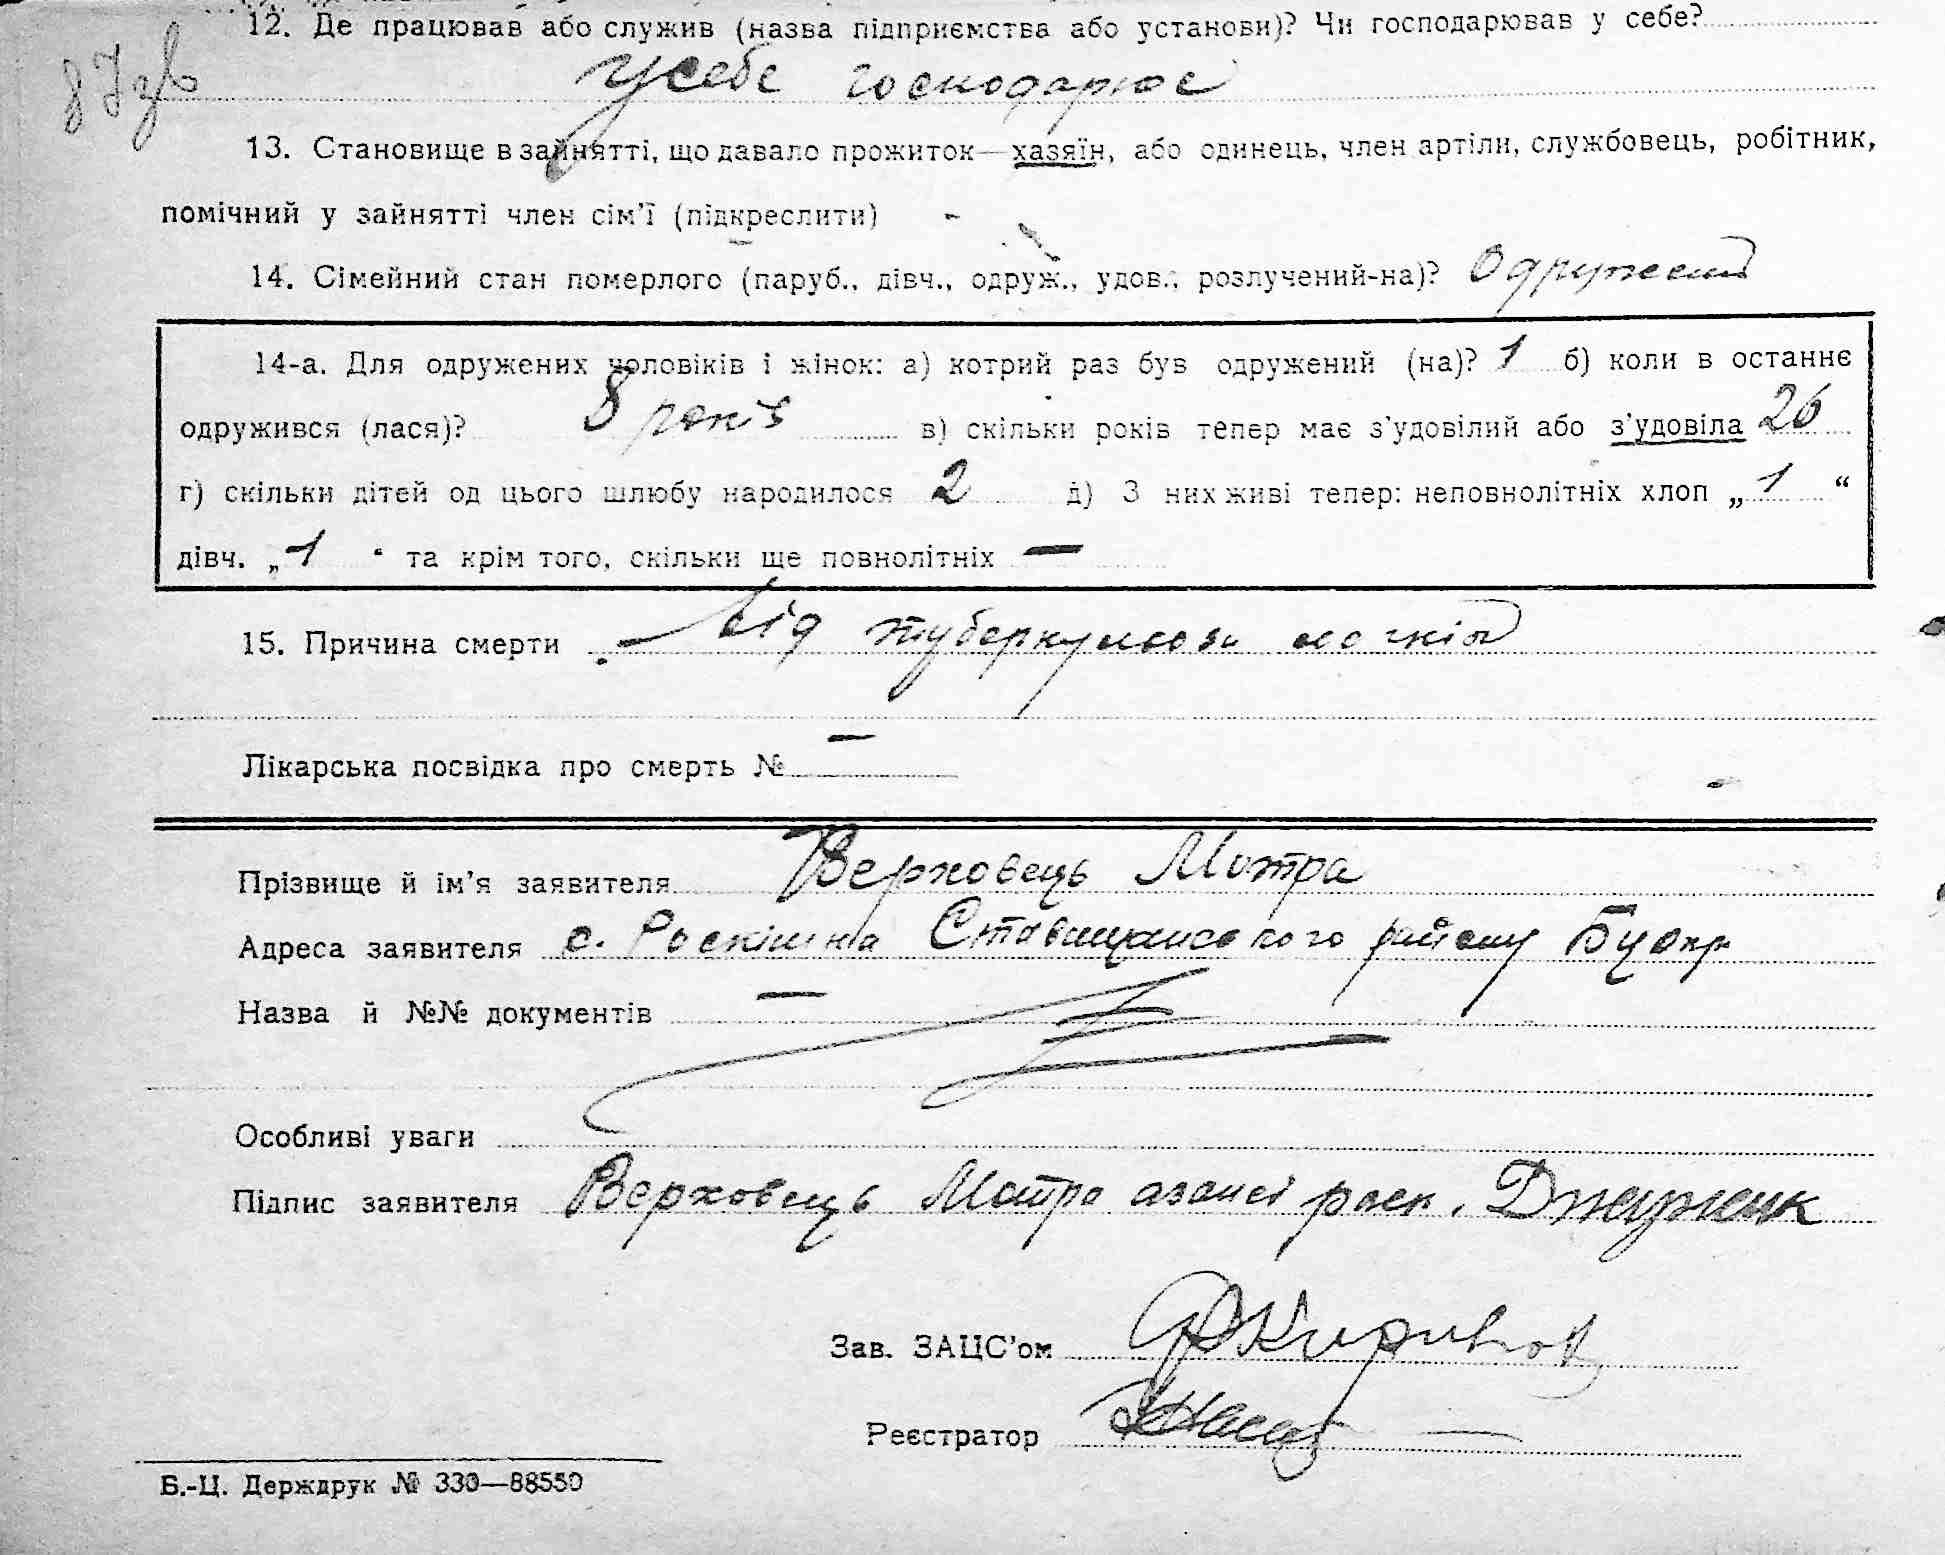 12. Де працював або служив (назва підприємства або установи)? Чи господарював у себе?
87 зв
у себе господарює
13. Становище в зайнятті, що давало прожиток—хазяїн, або одинець, член артіли, службовець, робітник,
помічний у зайнятті член сім'ї (підкреслити) -
14. Сімейний стан померлого (паруб., дівч., одруж., удов., розлучений-на)? Одружений
14-а. Для одружених чоловіків і жінок: а) котрий раз був одружений (на)? 1 б) коли в останнє
одружився (лася)? 8 років в) скільки років тепер має з'удовілий або з'удовіла 26
г) скільки дітей од цього шлюбу народилося 2 д) З них живі тепер: неповнолітніх хлоп „ 1 “
дівч. „ 1 “ та крім того, скільки ще повнолітніх —
15. Причина смерти від туберкульози легнів
Лікарська посвідка про смерть № —
Прізвище й ім'я заявителя Верховець Мотра
Адреса заявителя с. Роскішна Ставищанського району БЦокр
Назва й №№ документів —
Особливі уваги
Підпис заявителя Верховець Мотра
Зав. ЗАЦС'ом
Реєстратор
Б.-Ц. Держдрук № 330—88550